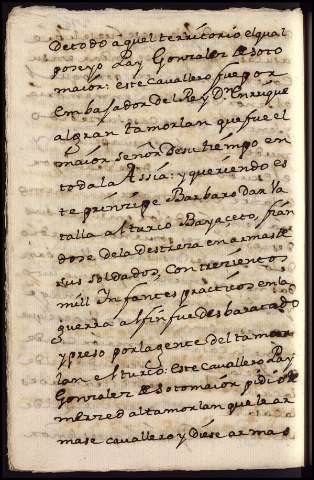 De todo aquel territorio el qual
poseyo Ruy Gonzalez de soto
maior: este cavallero fue por
embajador del Rey Dn Enrique
al gran tamorlan que fue el
maior señor de su tiempo en
toda la Assia: y queriendo es
te prinsipe Barbaro dar ba
talla al turco Bayaçeto, fian
dose de la destreza en armas de
sus soldados, con trezientos
mill Infantes practicos en la
guerra al fin fue desbaratado
y preso por la gente del tamor
lan el turco: este cavallero Ruy
Gonzalez de sotomaior pidio de
merzed al tamorlan que le ar
mase cavallero y diese armas